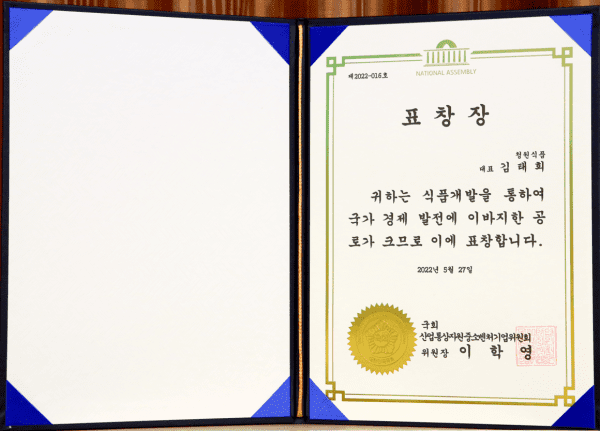 NATIONAL ASSEMBLY
제2022-016호
표 창 장
정원식품
대표 김 태 희
귀하는 식품개발을 통하여
국가 경제 발전에 이바지한 공
로가 크므로 이에 표창합니다.
2022년 5월 27일
국회
산업통상자원중소벤처기업위원회
위원장 이 학 영